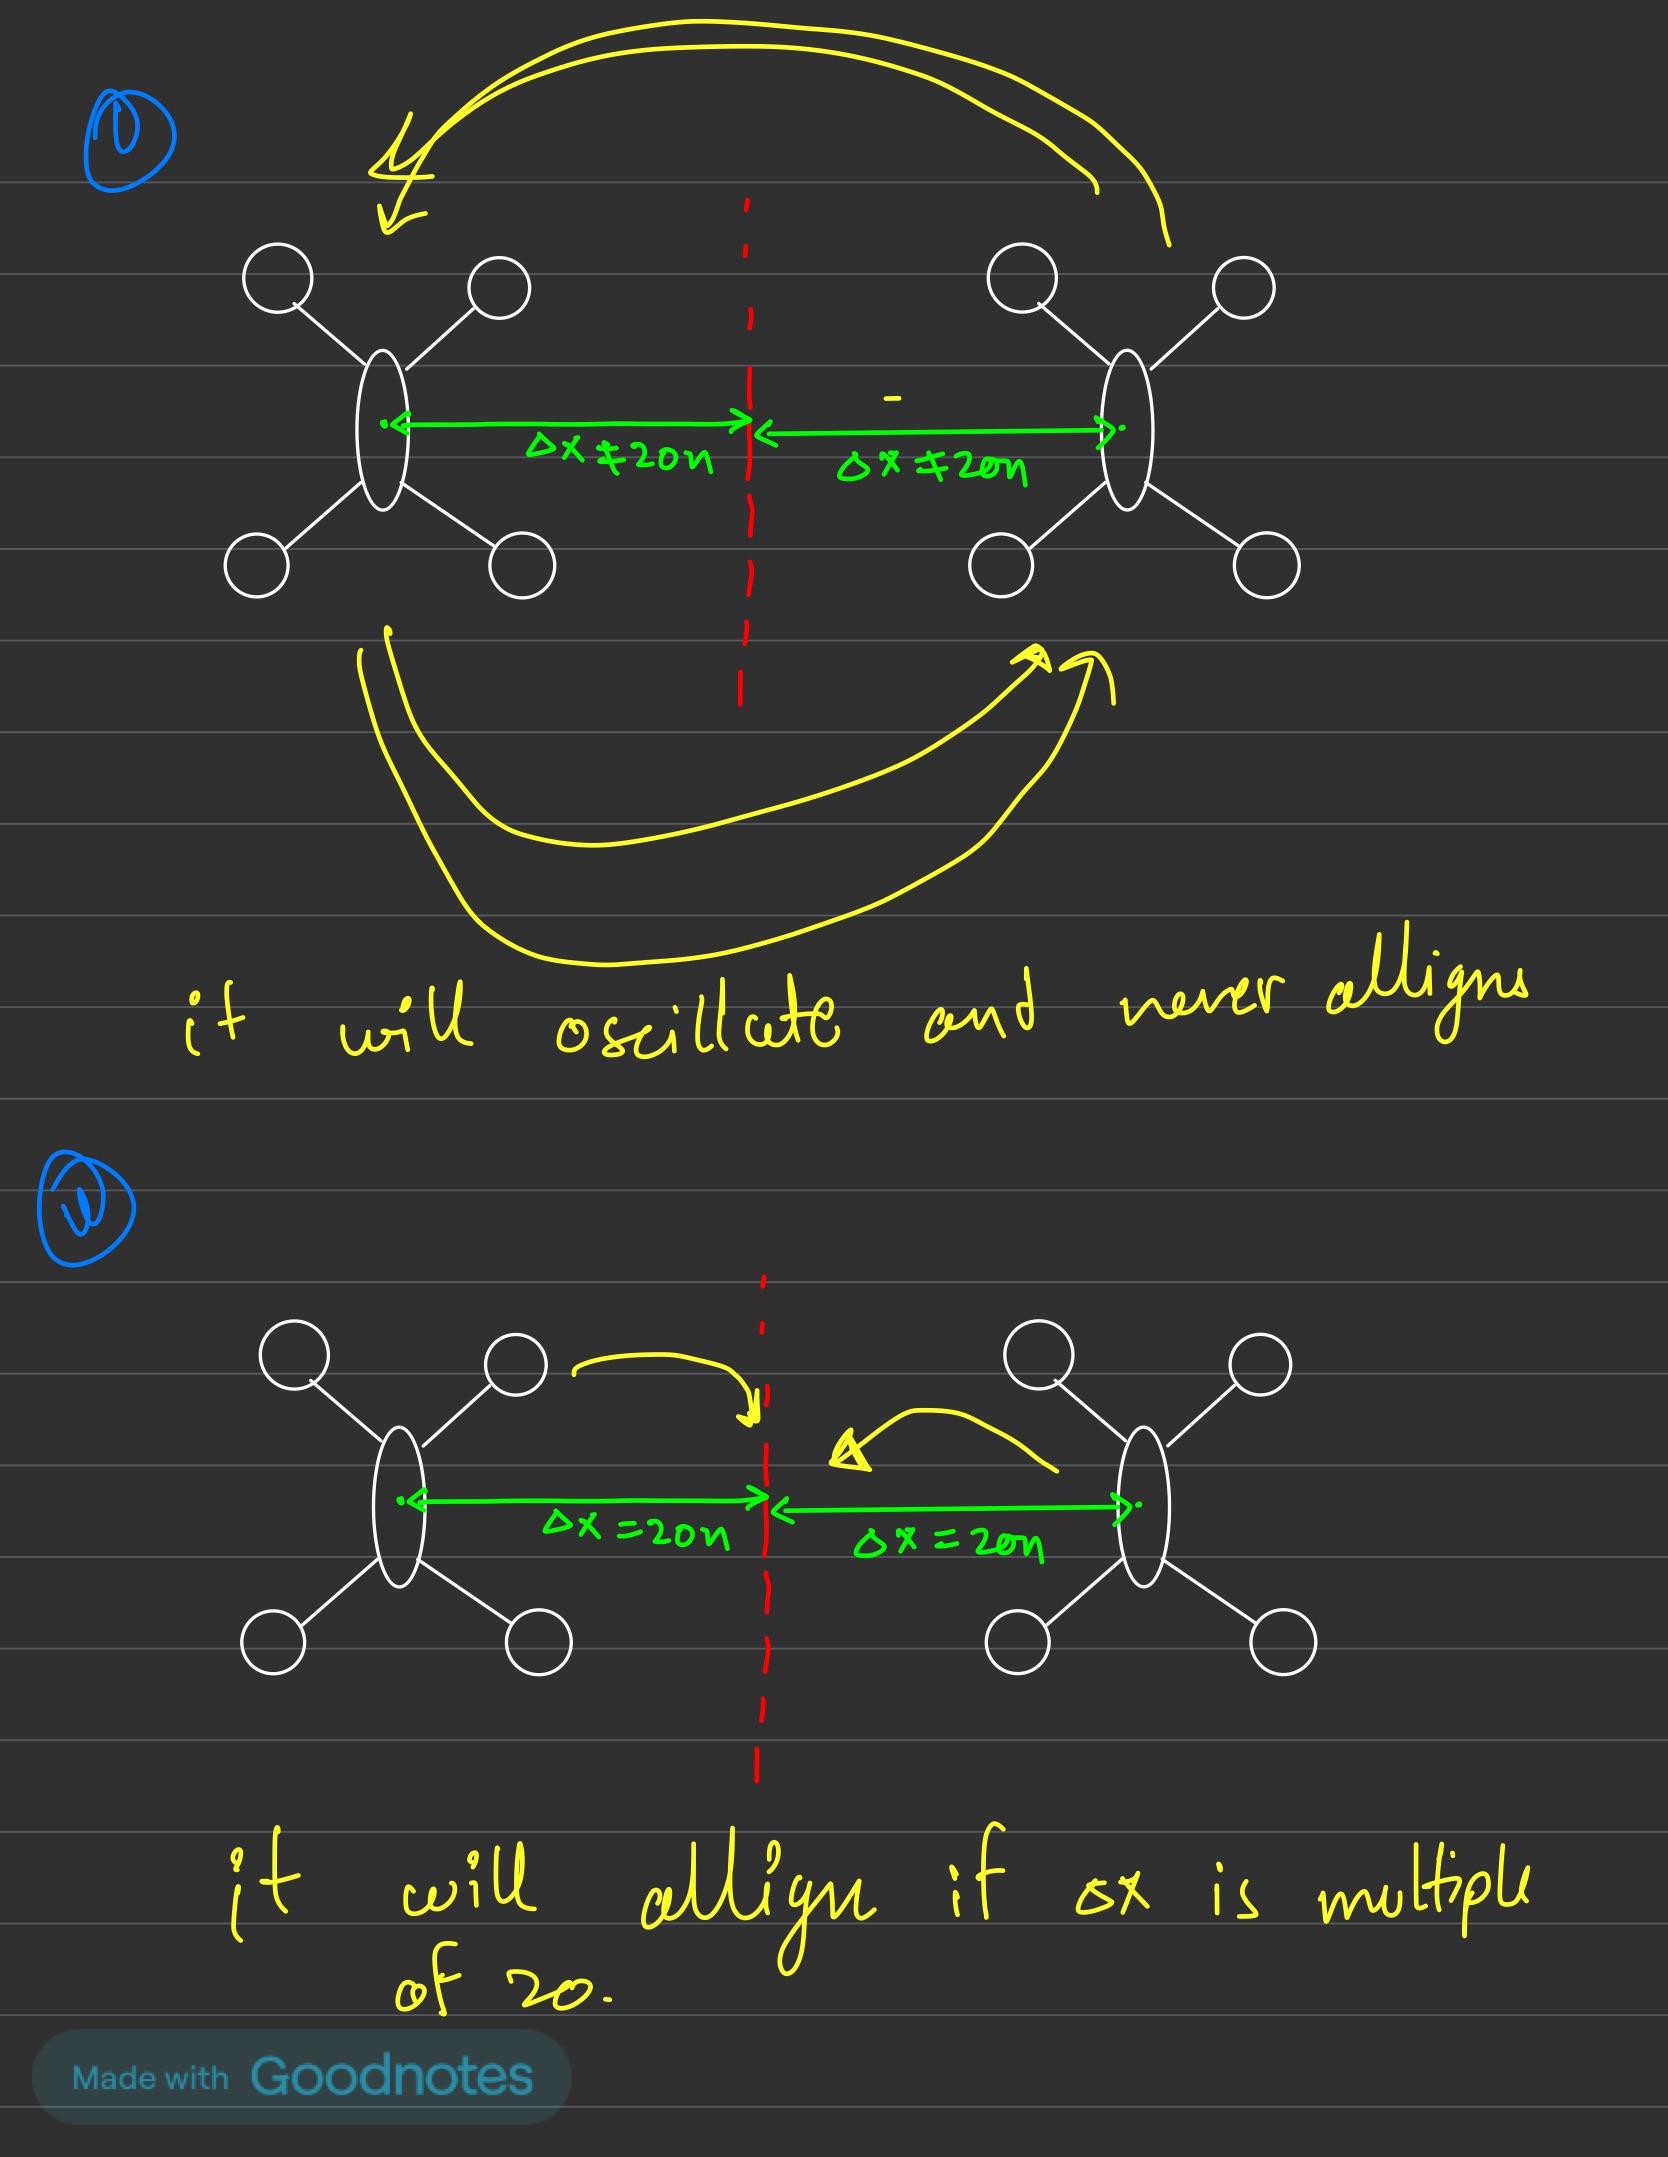 1
Δx ≠ 20n Δx ≠ 20n
it will oscillate and never alligns
Δx = 20n Δx = 20n
it will allign if Δx is multiple
of 20.
Made with Goodnotes